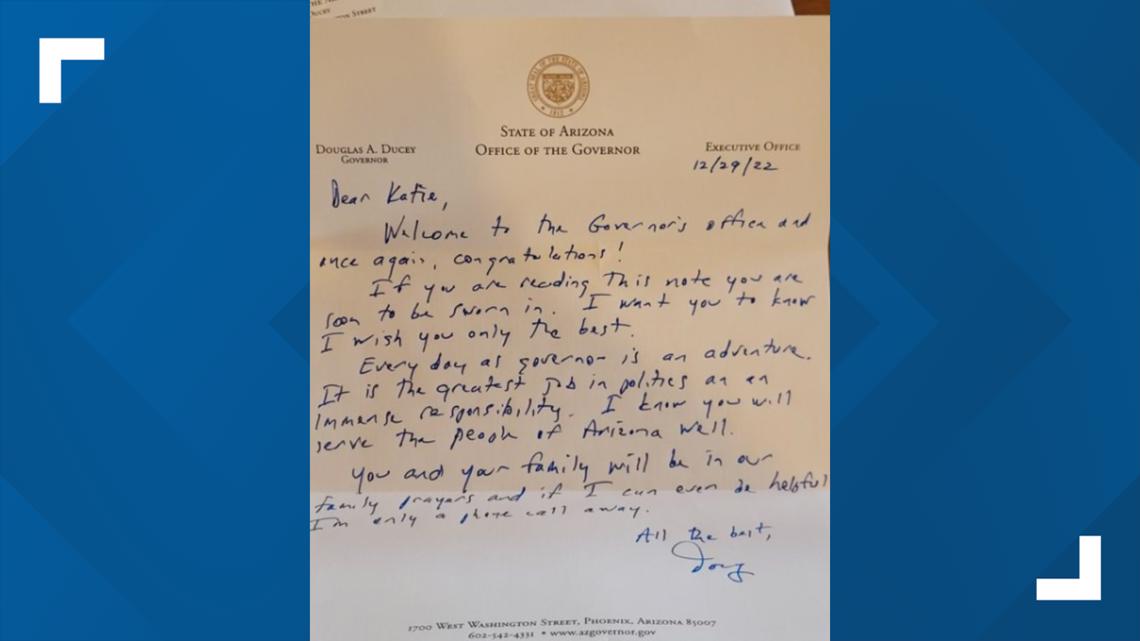 Ducey
ton Street
GREAT SEAL OF THE STATE OF ARIZONA
1912
State of Arizona
Office of the Governor
Douglas A. Ducey
Governor
Executive Office
12/29/22
Dear Katie,
Welcome to the Governor's office and
once again, congratulations!
If you are reading this note you are
soon to be sworn in. I want you to know
I wish you only the best.
Every day as governor is an adventure.
It is the greatest job in politics an an
immense responsibility. I know you will
serve the people of Arizona well.
You and your family will be in our
family prayers and if I can ever be helpful
I'm only a phone call away.
All the best,
Doug
1700 West Washington Street, Phoenix, Arizona 85007
602-542-4331 • www.azgovernor.gov